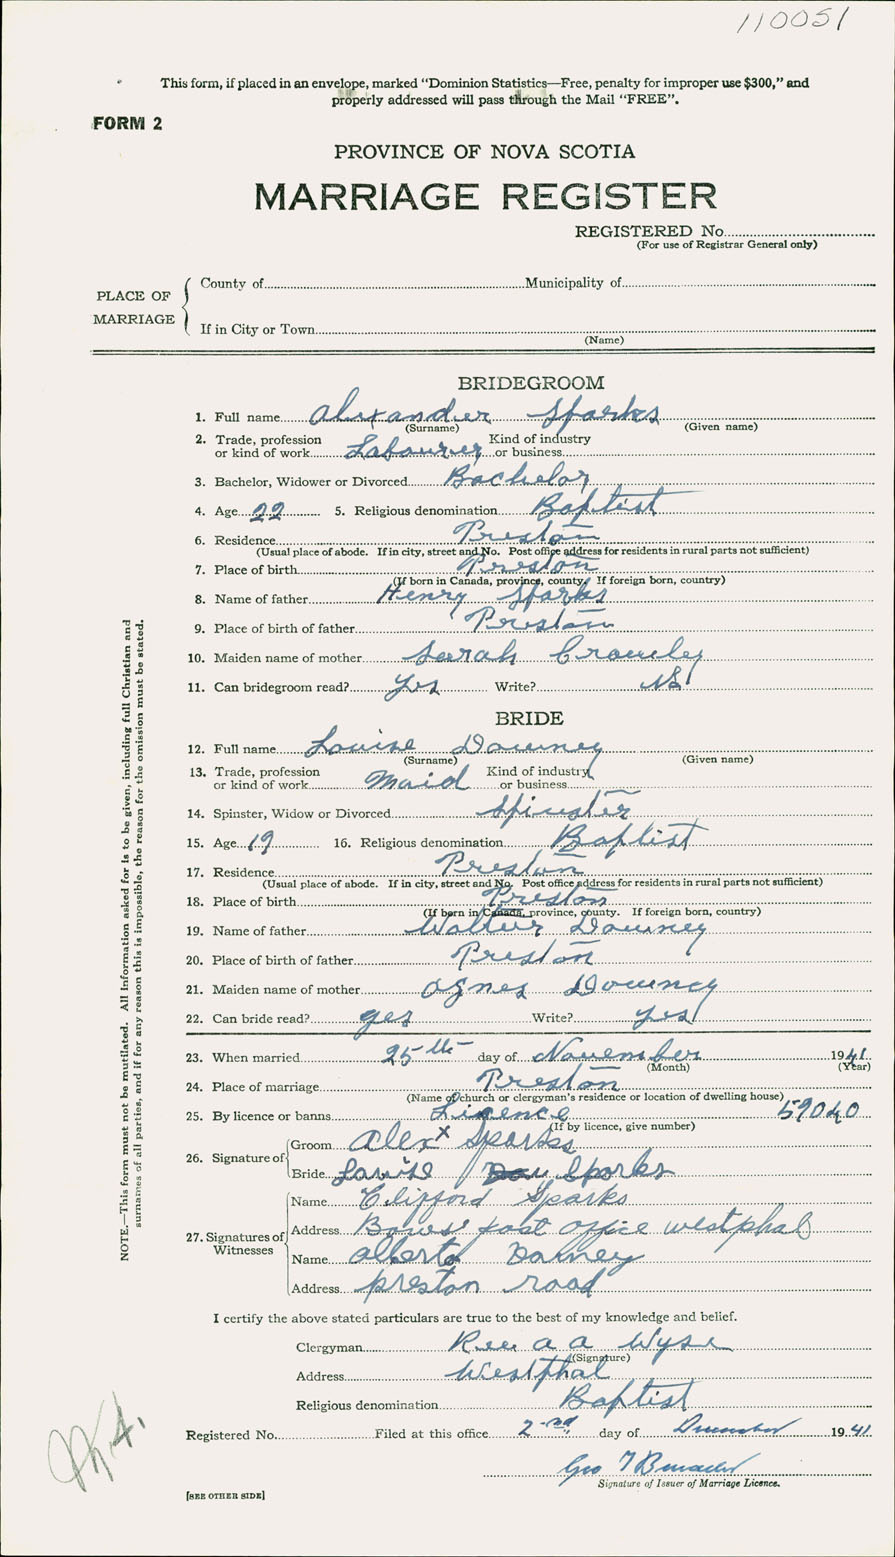 110051
This form, if placed in an envelope, marked “Dominion Statistics—Free, penalty for improper use $300,” and
properly addressed will pass through the Mail “FREE”.
FORM 2
PROVINCE OF NOVA SCOTIA
MARRIAGE REGISTER
REGISTERED No.
(For use of Registrar General only)
PLACE OF MARRIAGE
County of Municipality of
If in City or Town
(Name)
BRIDEGROOM
1. Full name Alexander Sparks
(Surname) (Given name)
2. Trade, profession or kind of work Labourer Kind of industry or business
3. Bachelor, Widower or Divorced Bachelor
4. Age 22 5. Religious denomination Baptist
6. Residence Preston
(Usual place of abode. If in city, street and No. Post office address for residents in rural parts not sufficient)
7. Place of birth Preston
(If born in Canada, province, county. If foreign born, country)
8. Name of father Henry Sparks
9. Place of birth of father Preston
10. Maiden name of mother Sarah Crowley
11. Can bridegroom read? Yes Write? No
BRIDE
12. Full name Louise Downey
(Surname) (Given name)
13. Trade, profession or kind of work Maid Kind of industry or business
14. Spinster, Widow or Divorced Spinster
15. Age 19 16. Religious denomination Baptist
17. Residence Preston
(Usual place of abode. If in city, street and No. Post office address for residents in rural parts not sufficient)
18. Place of birth Preston
(If born in Canada, province, county. If foreign born, country)
19. Name of father Walter Downey
20. Place of birth of father Preston
21. Maiden name of mother Agnes Downey
22. Can bride read? yes Write? yes
23. When married 25th day of November 1941
(Month) (Year)
24. Place of marriage Preston
(Name of church or clergyman's residence or location of dwelling house)
25. By licence or banns Lisence 59040
(If by licence, give number)
26. Signature of Groom Alex x Sparks
Bride Louise Sparks
27. Signatures of Witnesses
Name Clifford Sparks
Address post office westphal
Name Alberta
Address preston road
I certify the above stated particulars are true to the best of my knowledge and belief.
Clergyman Rev A A Wyse
(Signature)
Address Westphal
Religious denomination Baptist
Registered No. Filed at this office 2nd day of December 1941
Geo T
Signature of Issuer of Marriage Licence.
[SEE OTHER SIDE]
NOTE.—This form must not be mutilated. All information asked for is to be given, including full Christian and
surnames of all parties, and if for any reason this is impossible, the reason for the omission must be stated.